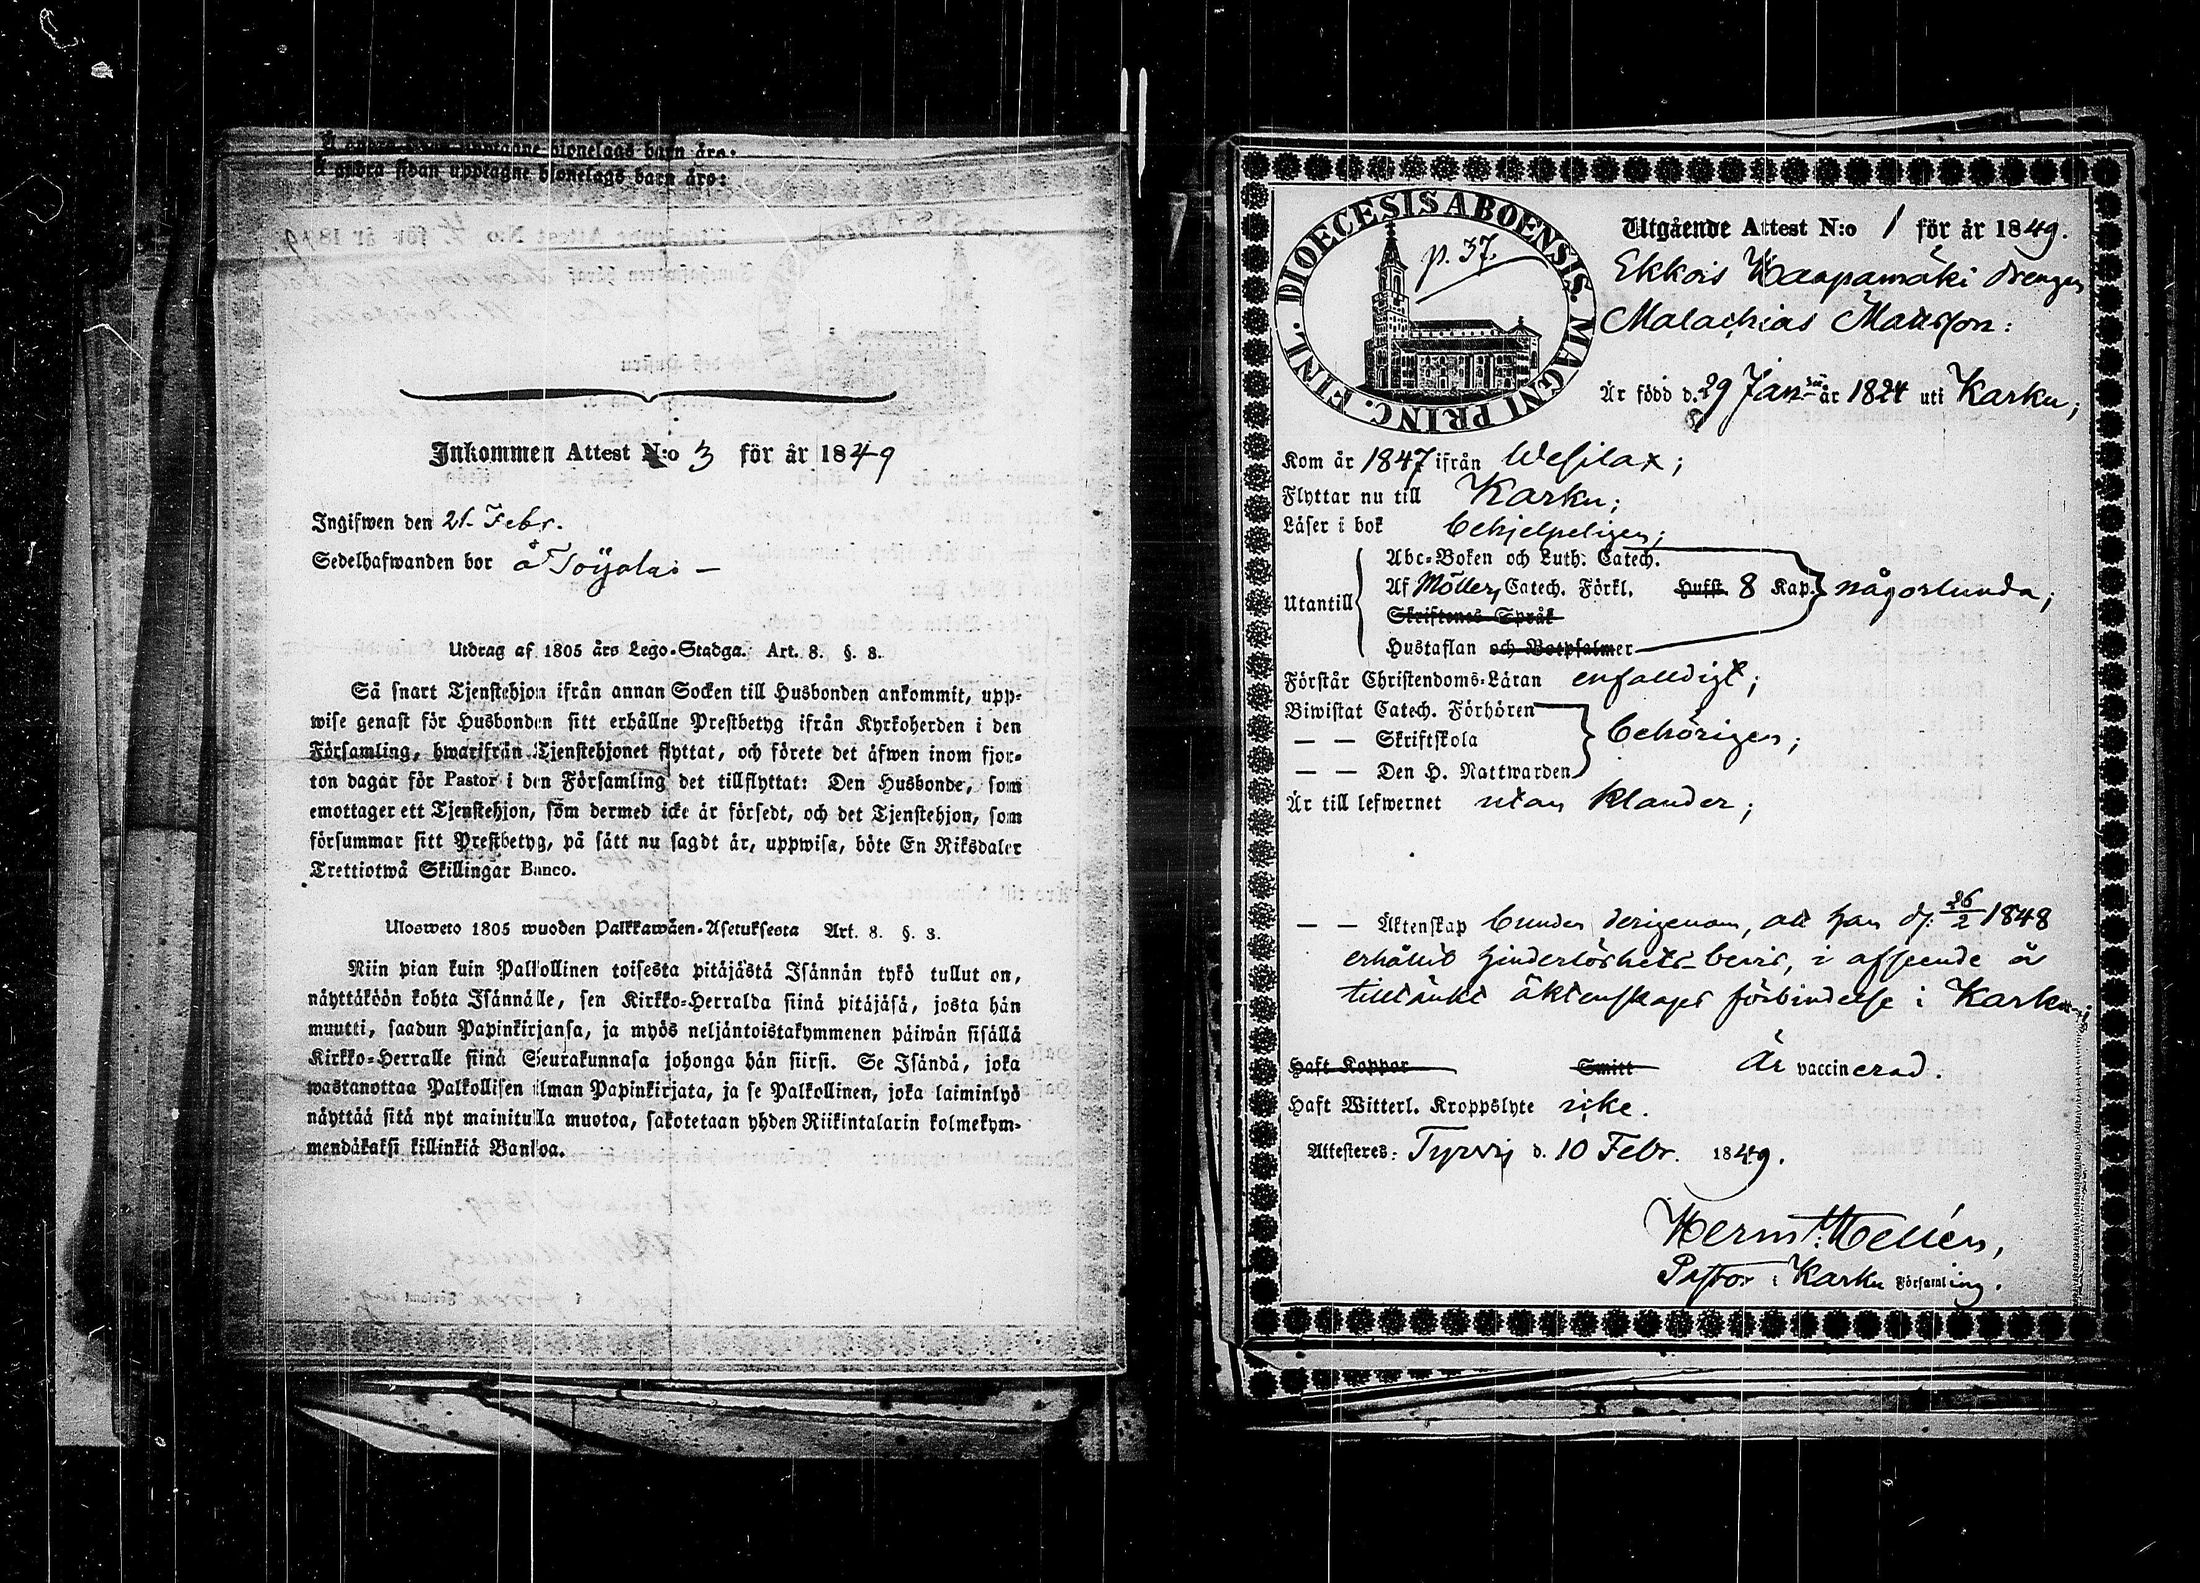 Å andra sidan upptagne hionelags barn äro:
Å andra sidan upptagne hionelags barn äro:
Inkommen Attest N:o 3 för år 1849
Ingifwen den 21 Febr.
Sedelhafwanden bor å Töyola: —
Utdrag af 1805 års Lego-Stadga. Art. 8. §. 8.
Så snart Tjenstehjon ifrån annan Socken till Husbonden ankommit, upp-
wise genast för Husbonden sitt erhållne Prestbetyg ifrån Kyrkoherden i den
Församling, hwarifrån Tjenstehjonet flyttat, och förete det äfwen inom fjor-
ton dagar för Pastor i den Församling det tillflyttat: Den Husbonde, som
emottager ett Tjenstehjon, som dermed icke är försedt, och det Tjenstehjon, som
försummar sitt Prestbetyg, på sätt nu sagdt är, uppwisa, böte En Riksdaler
Trettiotwå Skillingar Banco.
Ulosweto 1805 wuoden Palkkawäen-Asetuksesta Art. 8. §. 8.
Niin pian kuin Palkollinen toisesta pitäjästä Isännän tykö tullut on,
näyttäköön kohta Isännälle, sen Kirkko-Herralda siinä pitäjäsä, josta hän
muutti, saadun Papinkirjansa, ja myös neljäntoistakymmenen päiwän sisällä
Kirkko-Herralle siinä Seurakunnasa johonga hän siirsi. Se Isändä, joka
wastanottaa Palkollisen ilman Papinkirjata, ja se Palkollinen, joka laiminlyö
näyttää sitä nyt mainitulla muotoa, sakotetaan yhden Riikintalarin kolmekym-
mendäkaksi killinkiä Bankoa.
DIOECESIS ABOENSIS. MAGNI PRINC. FINL.
p. 37.
Utgående Attest N:o 1 för år 1849.
Ekkois Haapamäki drengen
Malachias Mattsson:
Är född d. 29 Jan. år 1824 uti Karku;
Kom år 1847 ifrån Wesilax;
Flyttar nu till Karku;
Läser i bok behjelpeligen;
Utantill
Abc-Boken och Luth. Catech.
Af Möllers Catech. Förkl. Hufst. 8 Kap. någorlunda;
Skriftenes Språk
Hustaflan och Botpsalmer
Förstår Christendoms-Läran enfaldigt;
Biwistat Catech. Förhören
— — Skriftskola behörigen;
— — Den H. Nattwarden
Är till lefwernet utan klander;
— — Äktenskap bunden derigenom, att han d. 26/2 1848
erhållit hinderlöshets-bevis, i afseende å
tilltänkt äktenskaps förbindelse i Karku;
Haft Koppor Smitt Är vaccinerad.
Haft Witterl. Kroppslyte icke.
Attesteres: Tyrvis d. 10 Febr. 1849.
Herm. Hellén,
Pastor i Karku Församling.